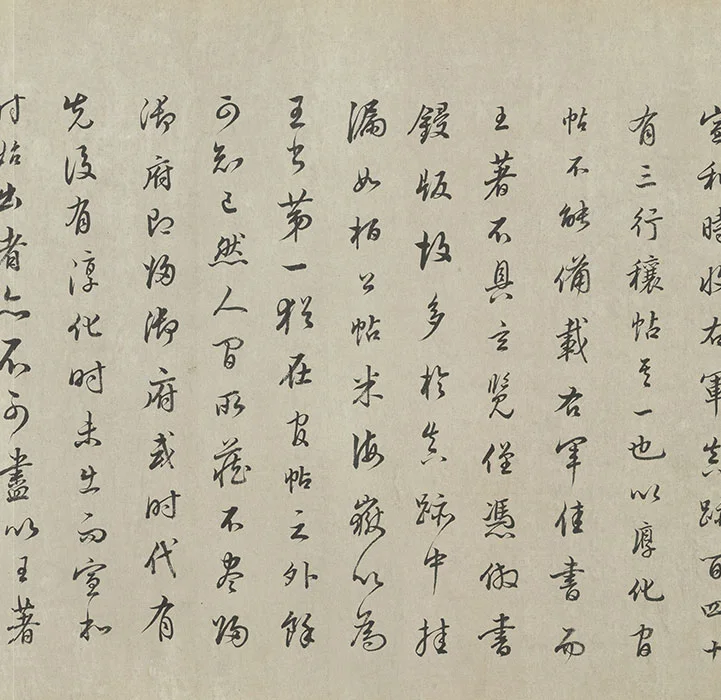 宣和時收右軍真跡百四十
有三行穰帖其一也以淳化官
帖不能備載右軍佳書而
王著不具玄覽僅憑倣書
鋟版故多於真跡中挂
漏如桓公帖米海嶽以為
王書第一猶在官帖之外餘
可知已然人間所藏不盡歸
御府即歸御府或時代有
先後有淳化時未出而宣和
時始出者亦不可盡以王著